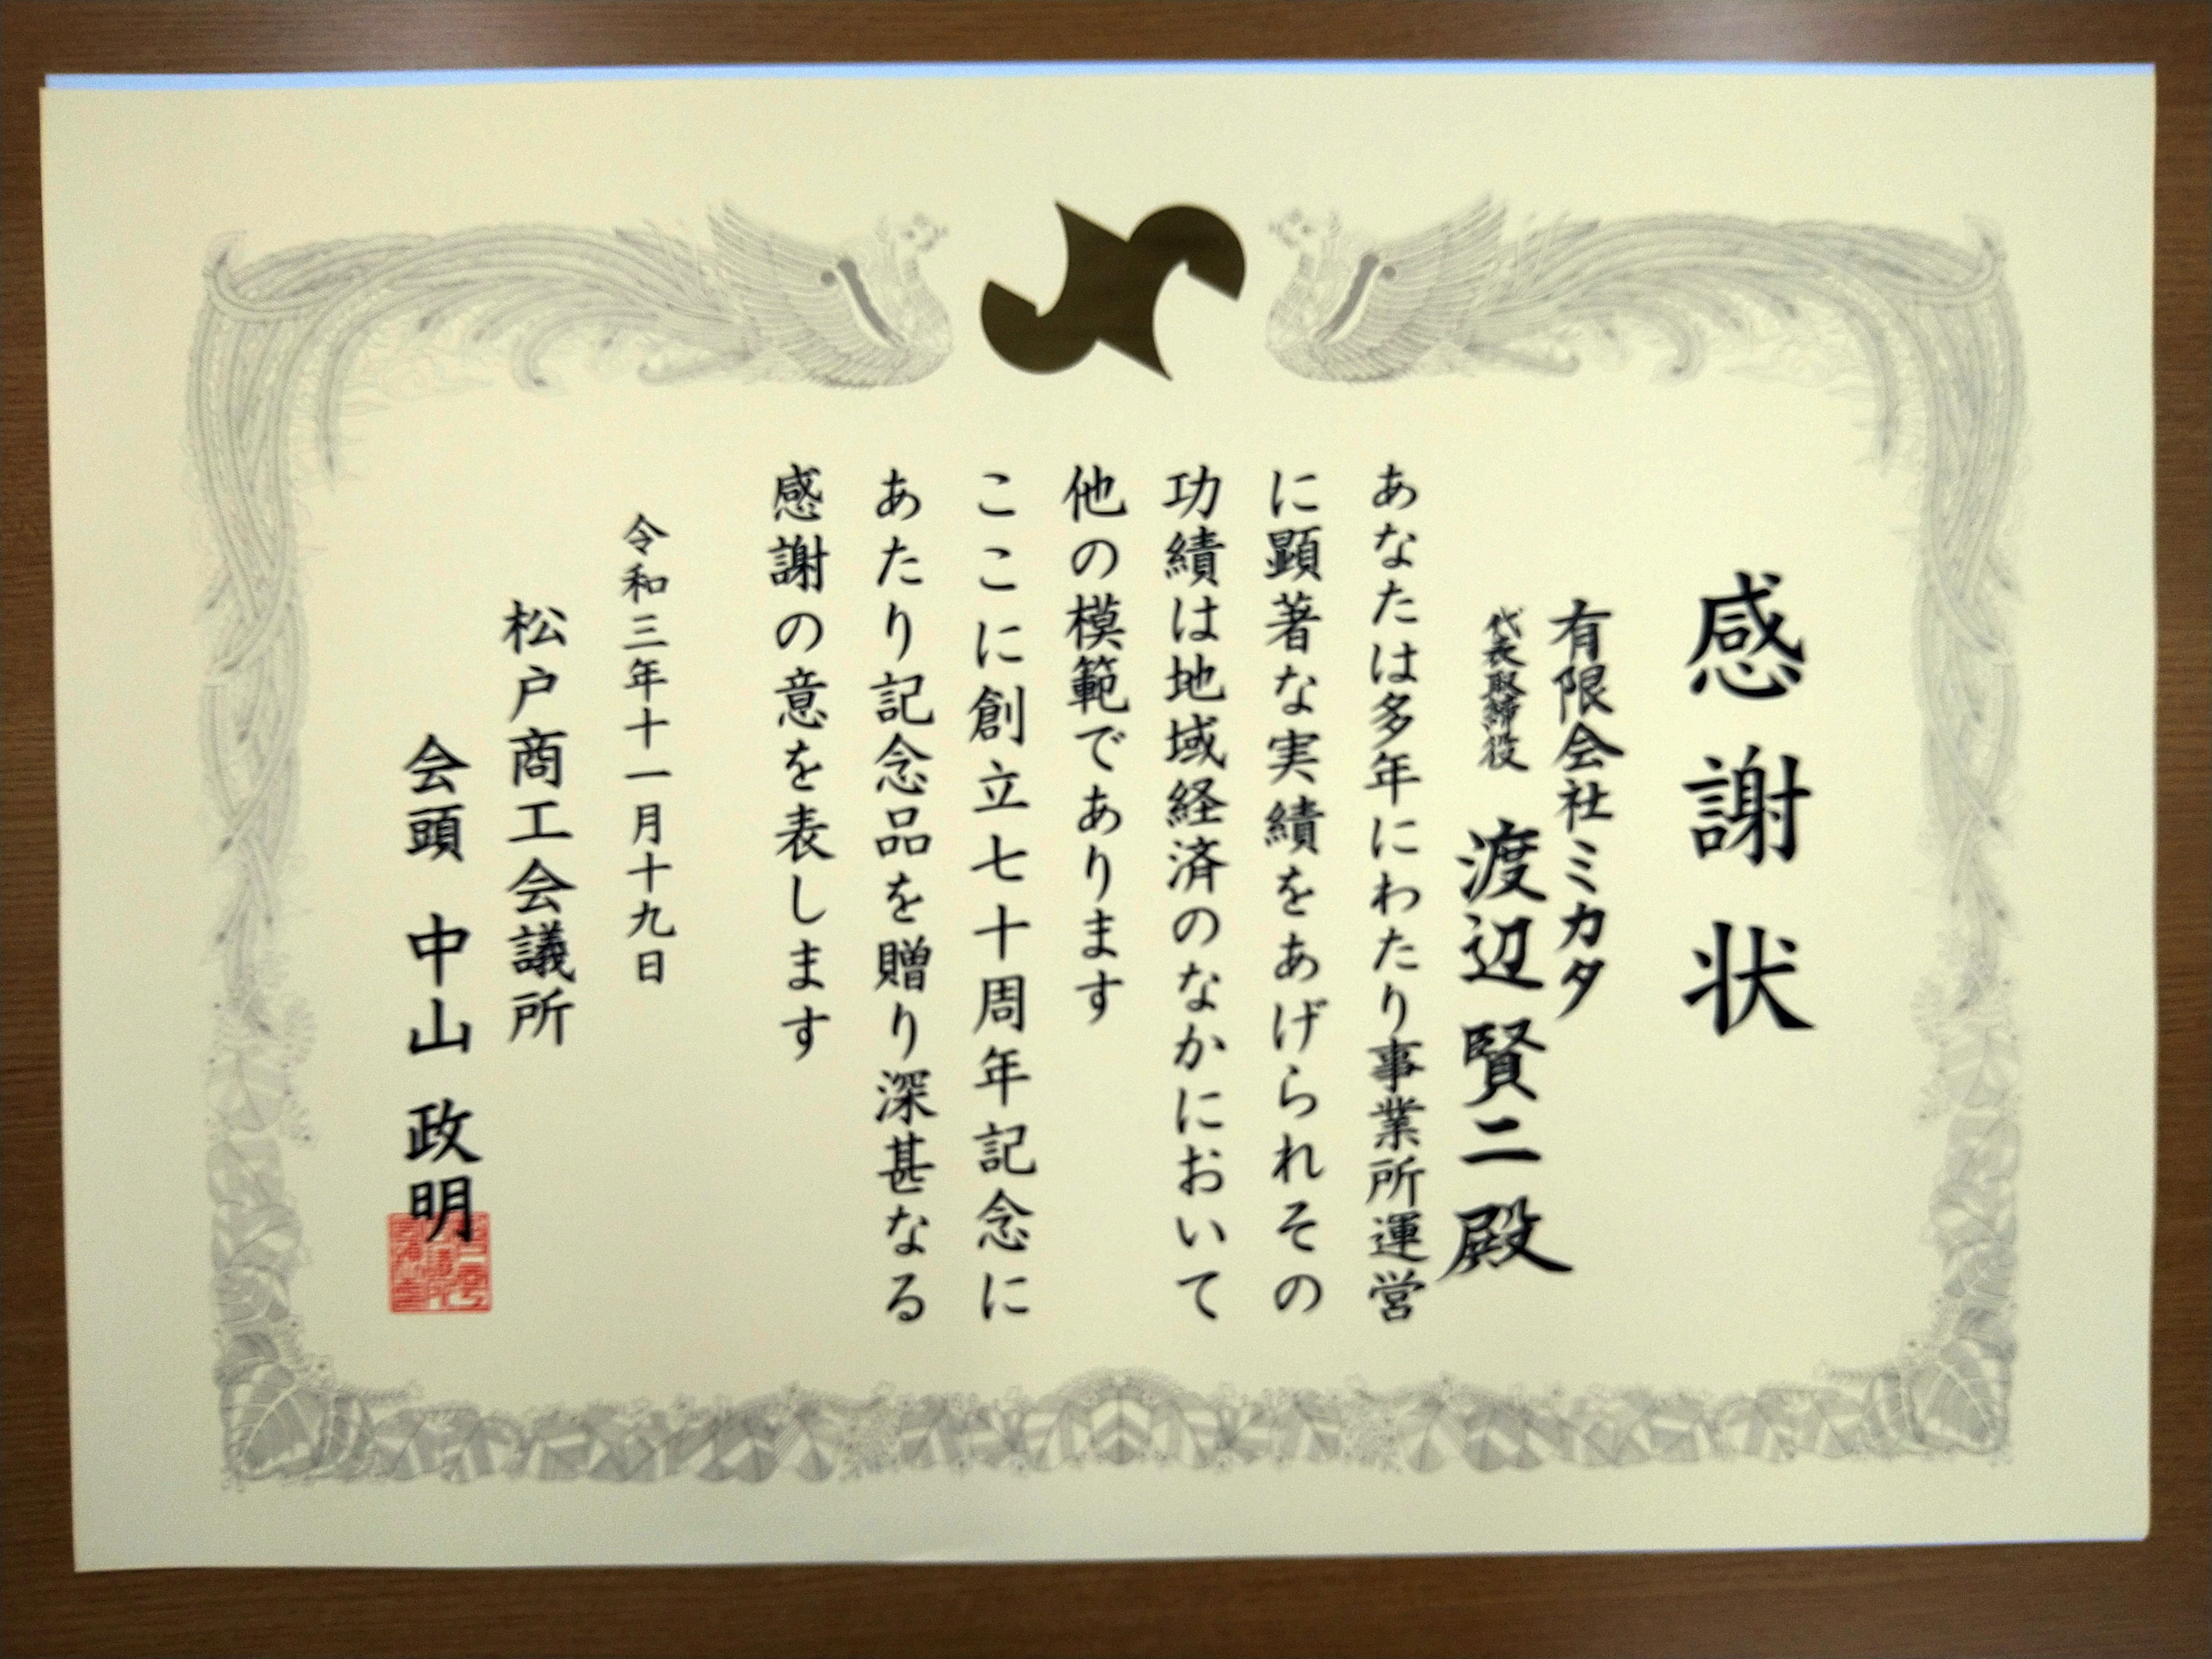 感謝状
有限会社ミカタ
代表取締役 渡辺賢二殿
あなたは多年にわたり事業所運営
に顕著な実績をあげられその
功績は地域経済のなかにおいて
他の模範であります
ここに創立七十周年記念に
あたり記念品を贈り深甚なる
感謝の意を表します
令和三年十一月十九日
松戸商工会議所
会頭 中山政明